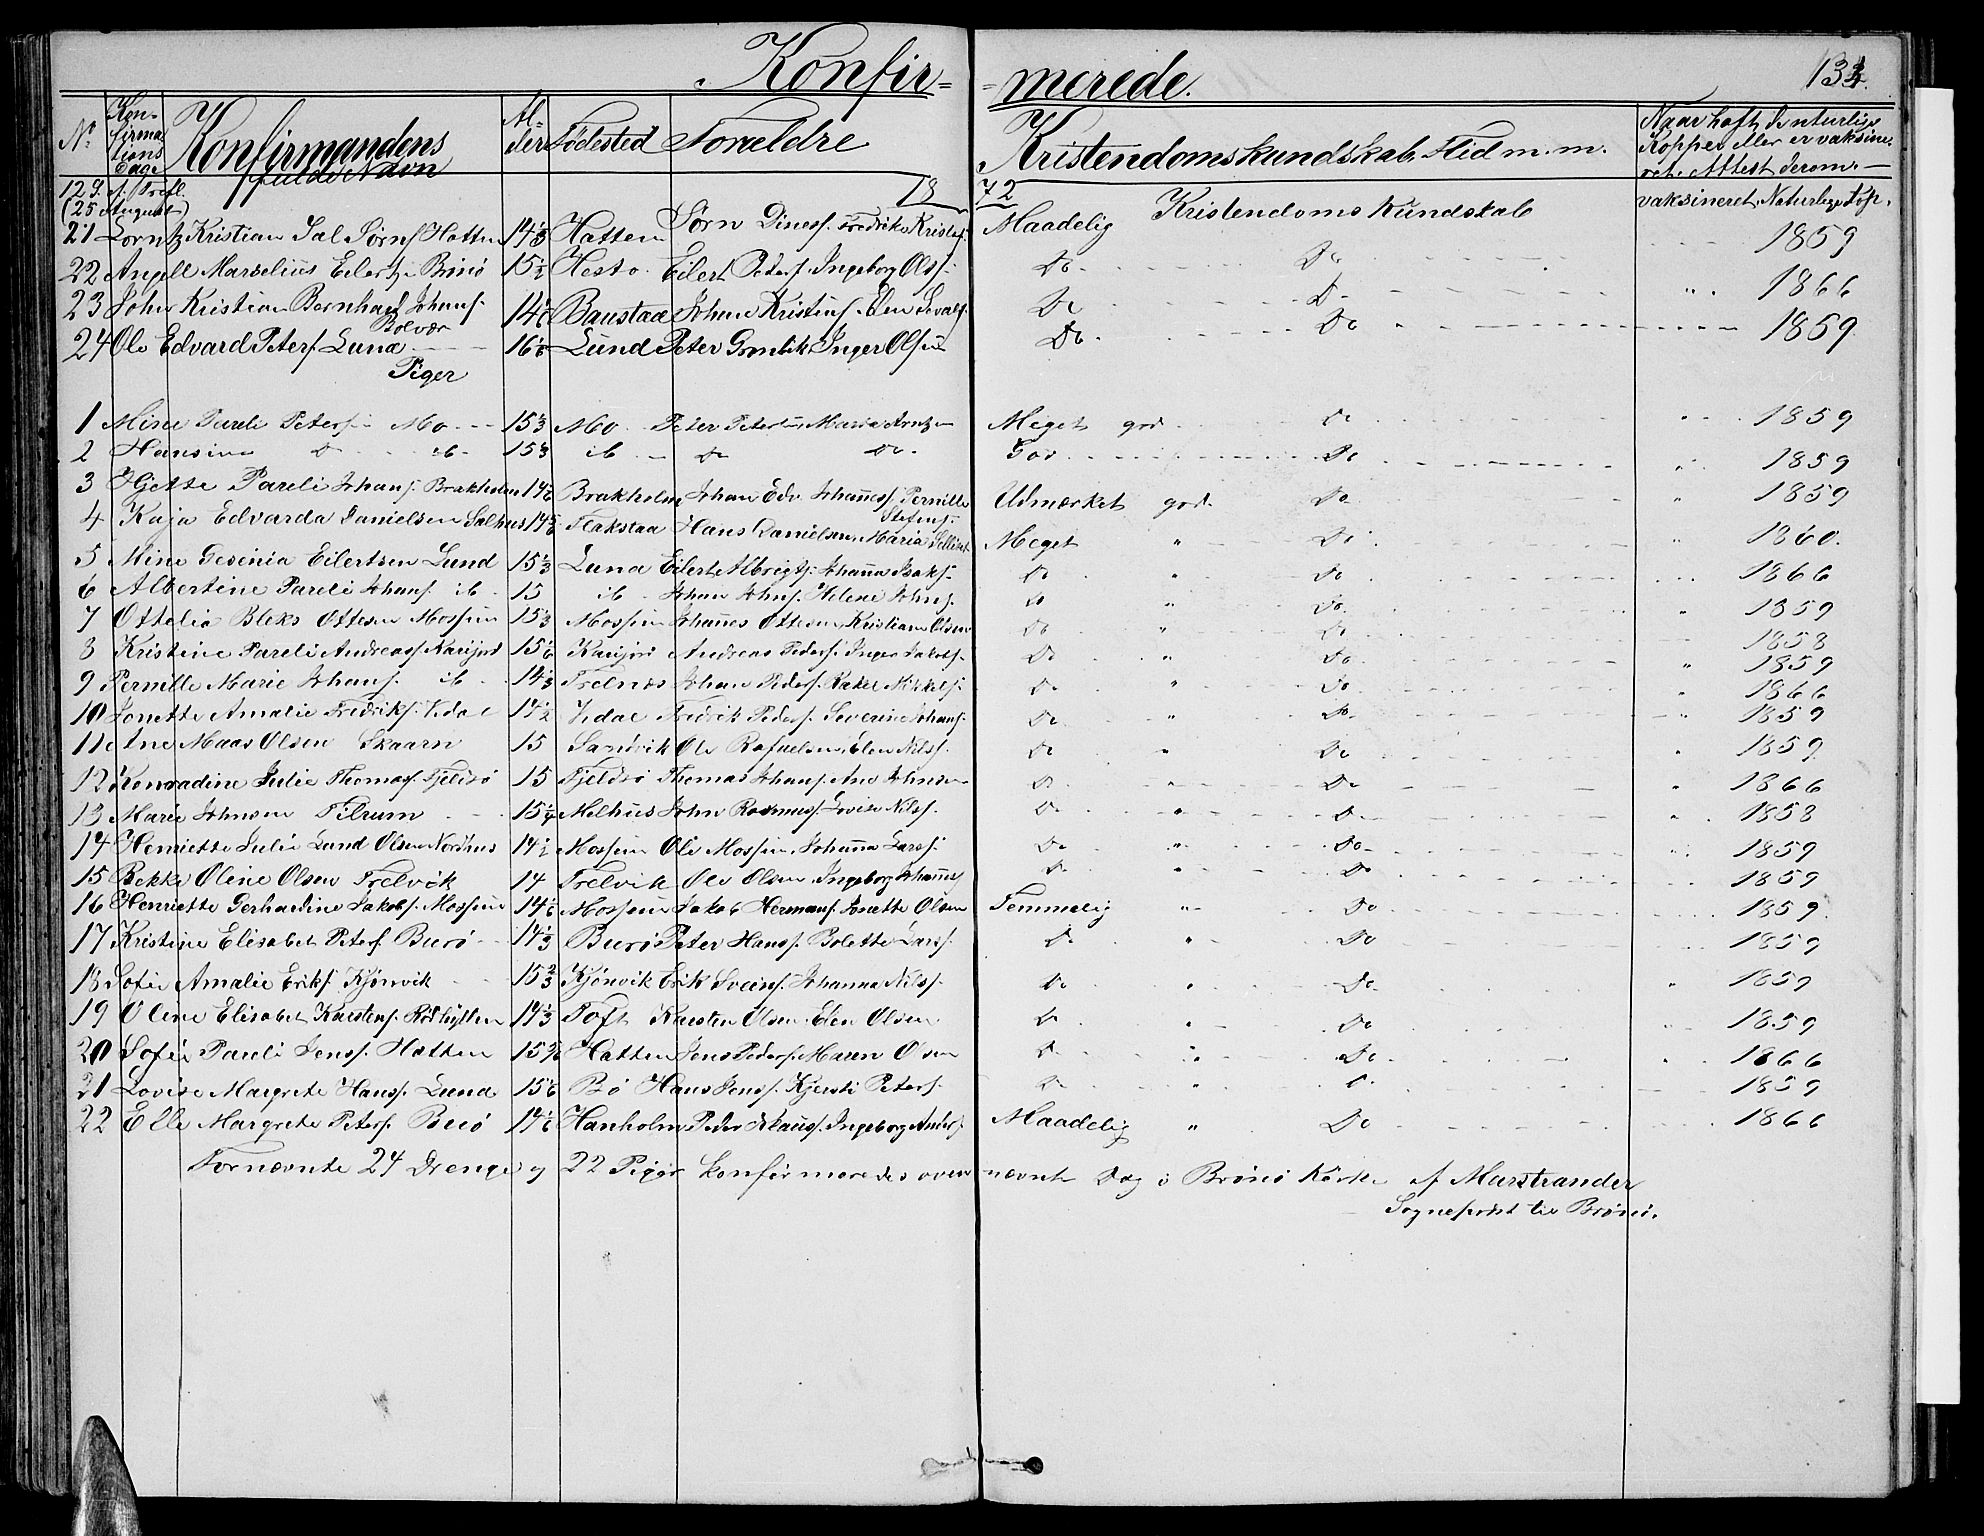 Konfir= =merede. 134.
No. Konfirmations Dage Konfirmandens fulde Navn Alder Födested Forældre Kristendomskundskab, Flid m.m. Naar haft de naturlige Kopper eller er vaksineret. Attest derom.
12 S. f. Trefl. (25 August) 18 72 vaksineret, Naturlige Kop.
21 Lorntz Kristian Hatten 14⅓ Hatten Sörn Dines. Fredrike Maadelig Kristendoms Kundskab 1859
22 Angell Marselius Eilerts. Brinö 15½ Hesto Eilert Peders. Ingeborg Ols. Do Do 1866
23 John Kristian Bernhard Johans. 14⅙ Baustaa Johan Kristins. Elen Do Do
24 Ole Edvard Peters. Lund 16⅙ Lund Peter Inger Olsen Do Do 1859
Piger
1 Mine Pareli Peters. Mo 15⅓ Mo Peter Maria Arntzen Meget god Do 1859
2 Hansine Do ib. 15⅓ ib Do Do God Do 1859
3 Hjette Pareli Johans. Brakholm 14⅙ Brakholm Johan Edv. Johannes. Pernille Stefens. Udmærket god Do 1859
4 Kaja Edvarda Danielsen Salhus 14⅚ Flakstaa Hans Danielsen, Maria Meget " Do 1860.
5 Mine Gesenia Eilertsen Lund 15⅓ Lund Eilert Albrigts. Johanna Isaks. Do " Do 1866
6 Albertine Pareli Johans. ib 15 ib Johan Johns. Helene Johns. Do " Do 1859
7 Ottelia Bleks Ottesen Mossum 15⅓ Mossum Johannes Ottesen, Kristiane Olsen Do " Do 1858
8 Kristine Pareli Andreass. Karijord 15⅙ Karijord Andreas Peders. Inger Jakobs. Do " Do 1859
9 Pernille Marie Johans. ib 14⅓ Trelnes Johan Peders. Rakel Mikkels. Do " Do 1866
10 Jonette Amalie Fredriks. Vedal 14½ Vedal Fredrik Peders. Severine Johans. Do " Do 1859
11 Ane Maas Olsen Skaarn 15 Sandvik Ole Rafaelsen, Elen Nilss. Do " Do 1859
12 Konradine Julie Thomas. Fjeldsö 15 Fjeldsö Thomas Johans. Ane Johnsen Do " Do 1866
13 Marie Johnsen Tilrum 15¼ Melhus John Rasmuss. Lovise Nilss. Do " Do 1858
14 Henriette Julie Lund Olsen Nordhus 14½ Mossum Ole Mossum, Johanna Larss. Do " Do 1859
15 Bekke Oline Olsen Trelvik 14 Trelvik Ole Olsen, Ingeborg Johannes. Do " Do 1859
16 Henriette Gerhardine Jakobs. Mossum 14⅙ Mossum Jakob Hermans. Jonette Olsen Temmelig " Do 1859.
17 Kristine Elisabet Peters. Burö 14⅓ Burö Peter Hanss. Bolette Larss. Do " Do 1859
18 Sofie Amalie Eriks. Kjönvik 15⅔ Kjönvik Erik Sveins. Johanna Nilss. Do " Do 1859
19 Oline Elisabet Karstens. Rödhytten 14⅓ Toft Karsten Olsen, Elen Olsen Do " Do 1859
20 Sofie Pareli Jenss. Hatten 15⅚ Hatten Jens Peders. Maren Olsen Do " Do 1866
21 Lovise Margrete Hanss. Lund 15⅙ Bö Hans Jenss. Kjersti Peters. Do " Do 1859
22 Elle Margrete Peters. Burö 14⅙ Hanholm Peder Ingeborg Anders. Maadelig " Do 1866
Fornævnte 24 Drenge og 22 Piger konfirmeredes ovennævnte Dag i Brönö Kirke af Marstrander
Sogneprest til Brönö.